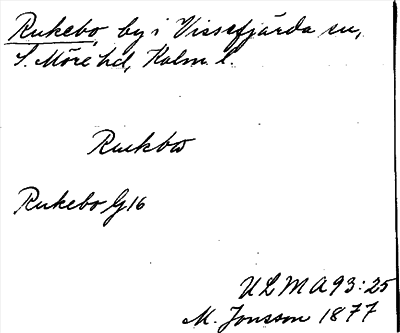 Rukebo, by i Vissefjärda sn,
S. Möre hd, Kalm. l.
Rukebo G16
ULMA 93:25
M. Jonsson 1877